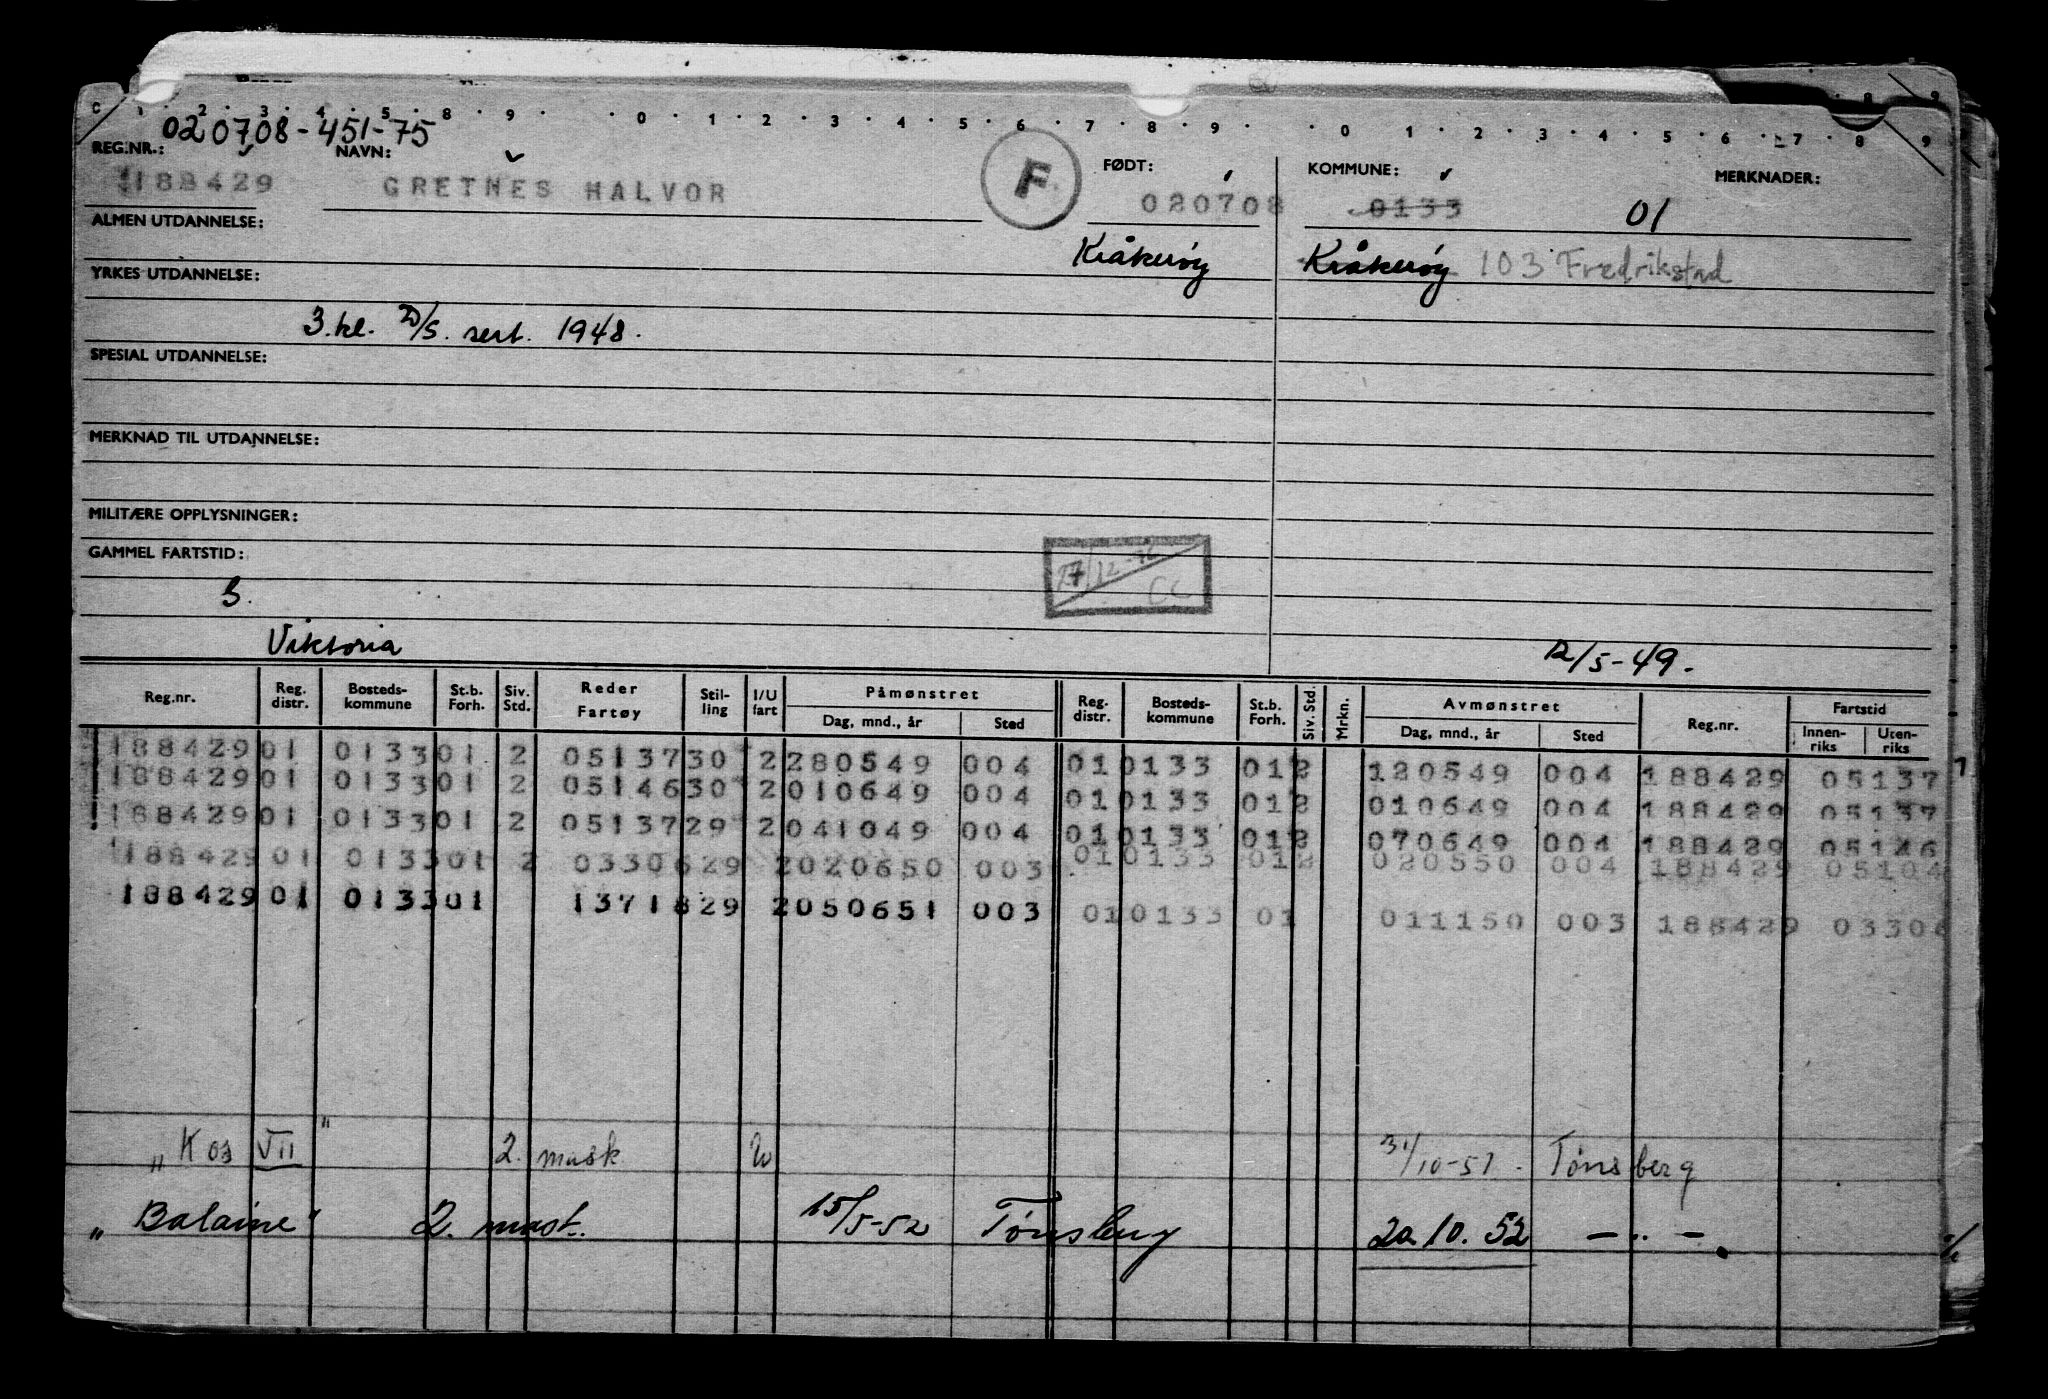 C 1 · 2 · 3 · 4 · 5 · 8 · 9 · · 0 · 1 · 2 · 3 · 4 · 5 · 6 · 7 · 8 · 9 · · 0 · 1 · 2 · 3 · 4 · 5 · 6 · 7 · 8 · 9
020708-451-75
REG.NR.: NAVN: FØDT: KOMMUNE: MERKNADER:
188429 GRETNES HALVOR F 020708 0133 01
ALMEN UTDANNELSE:
Kråkerøy Kråkerøy 103 Fredrikstad
YRKES UTDANNELSE:
3. kl. D/S. sert. 1948.
SPESIAL UTDANNELSE:
MERKNAD TIL UTDANNELSE:
MILITÆRE OPPLYSNINGER:
GAMMEL FARTSTID:
27/12-76 CC
S.
Viktoria 12/5-49.
Reg.nr. Reg. distr. Bosteds-kommune St.b. Forh. Siv. Std. Reder Fartøy Stil-ling I/U fart Påmønstret Dag, mnd., år Sted Reg. distr. Bosteds-kommune St.b. Forh. Siv. Std. Mrkn. Avmønstret Dag, mnd., år Sted Reg.nr. Fartstid Innen-riks Uten-riks
188429 01 0133 01 2 05137 30 2 280549 004 01 0133 01 2 120549 004 188429 05137
188429 01 0133 01 2 05146 30 2 010649 004 01 0133 01 2 010649 004 188429 05137
188429 01 0133 01 2 05137 29 2 041049 004 01 0133 01 2 070649 004 188429 05146
188429 01 0133 01 2 03306 29 2 020650 003 01 0133 01 2 020550 004 188429 05104
188429 01 0133 01 13718 29 2 050651 003 01 0133 01 011150 003 188429 03306
„Kos VII" 2. mask U 31/10-51. Tønsberg
„Balaine" 2. mast. 15/5-52 Tønsberg 20.10.52 — „ —.